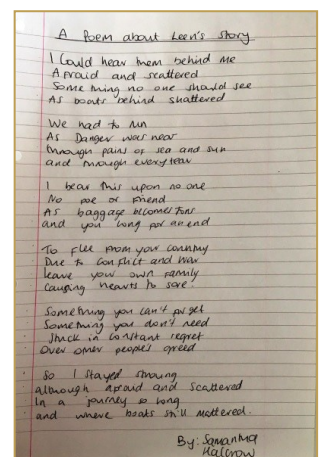 A Poem about Leen's Story
I Could hear them behind me
Afraid and scattered
Something no one should see
As boats behind shattered
We had to run
As Danger was near
through pains of sea and sun
and through every tear
I bear this upon no one
No foe or friend
As baggage becomes tons
and you long for an end
To flee from your country
Due to conflict and war
leave your own family
Causing hearts to sore
Something you can't forget
Something you don't need
Stuck in constant regret
Over other people's greed
So I stayed strong
although afraid and Scattered
In a journey so long
and where boats still mattered.
By: Samantha
Halcrow